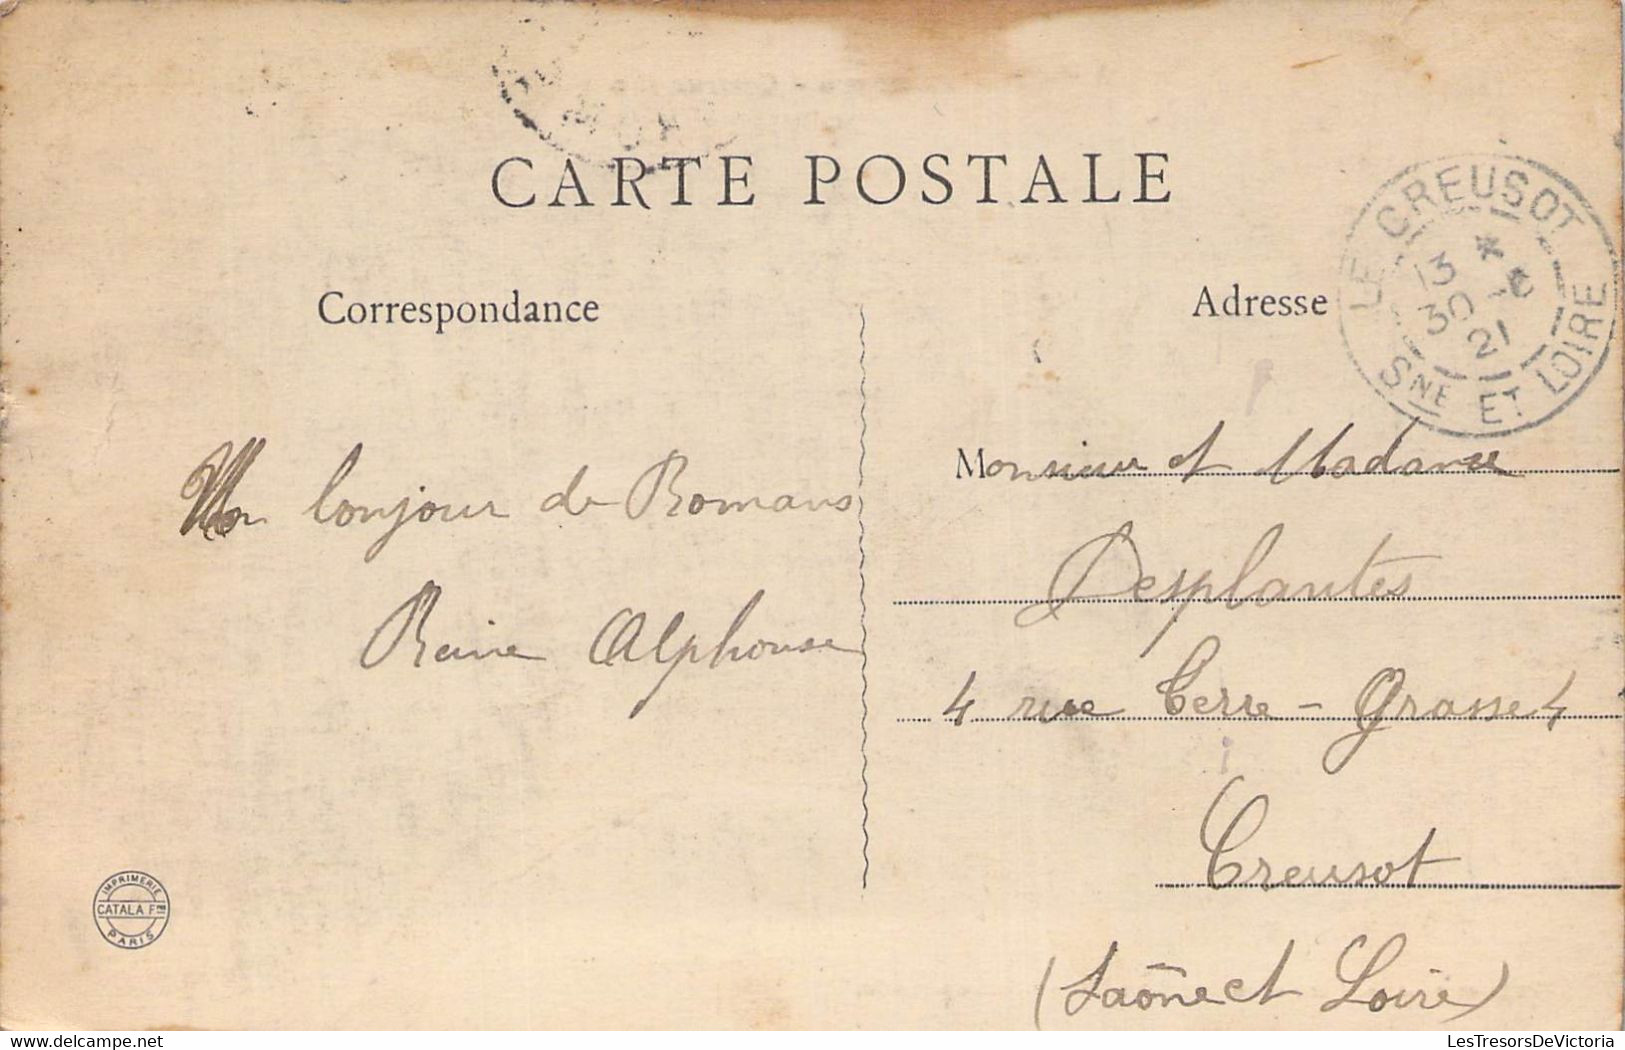 CARTE POSTALE
Correspondance
Adresse
LE CREUSOT
13 *
30 - 6
21
SNE ET LOIRE
Monsieur et Madame
Un bonjour de Romans
Desplantes
Reine Alphonse
4 rue Terre - Grasse 4
Creusot
IMPRIMERIE
CATALA Fres
PARIS
(Saône et Loire)
LesTresorsDeVictoria